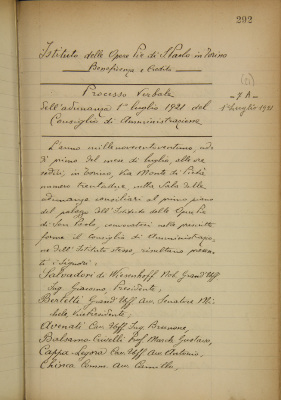 292
Istituto delle Opere Pie di S. Paolo in Torino
Beneficenza e Credito
Processo Verbale
dell'adunanza 1º luglio 1921 del
Consiglio di Amministrazione
7 A
1º luglio 1921
L'anno millenovecentoventuno, ad-
dì primo del mese di luglio, alle ore
sedici, in Torino, Via Monte di Pietà
numero trentadue, nella Sala delle
adunanze consiliari al primo piano
del palazzo dell'Istituto delle Opere Pie
di San Paolo, convocatosi nella prescritta
forma il Consiglio di Amministrazio-
ne dell'Istituto stesso, risultano presen-
ti i Signori:
Salvadori di Wiesenhoff Nob. Grand'Uff.
Ing. Giacomo, Presidente,
Bertetti Grand'Uff. Avv. Senatore Mi-
chele, Vice Presidente,
Avenati Cav. Uff. Ing.
Balsamo Crivelli Prof. March. Gustavo,
Cappa-Legora Cav. Uff. Avv. Antonio,
Chiesa Comm. Avv. Camillo,